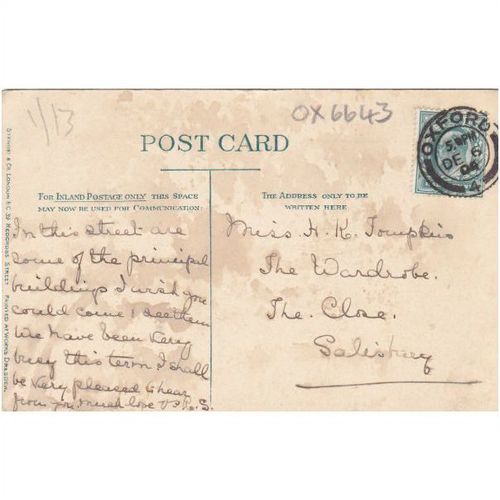 1/13
OX6643
POST CARD
OXFORD
5. PM
DE 6
04
4
FOR INLAND POSTAGE ONLY THIS SPACE
MAY NOW BE USED FOR COMMUNICATION.
THE ADDRESS ONLY TO BE
WRITTEN HERE.
In this street are
some of the principal
buildings I wish you
could come & see them
We have been very
busy this term I shall
be very pleased to hear
from you much love
Miss. H. K. Tompkins
The Wardrobe.
The. Close.
Salisbury
STEWART & CO. LONDON E.C. 39 REDCROSS STREET PRINTED AT WORKS DRESDEN.